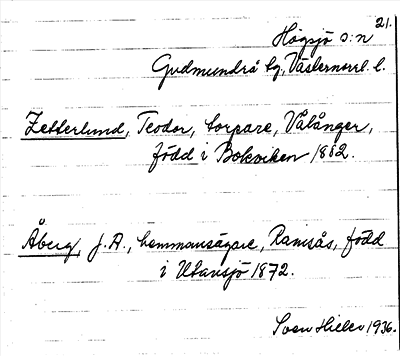 21.
Högsjö s:n
Gudmundrå tg, Västernorrl. l.
Zetterlund, Teodor, torpare, Vålånger,
född i Bokviken 1882.
Åberg, J.A., hemmansägare, Ramsås, född
i Utansjö 1872.
Sven Hieler 1936.